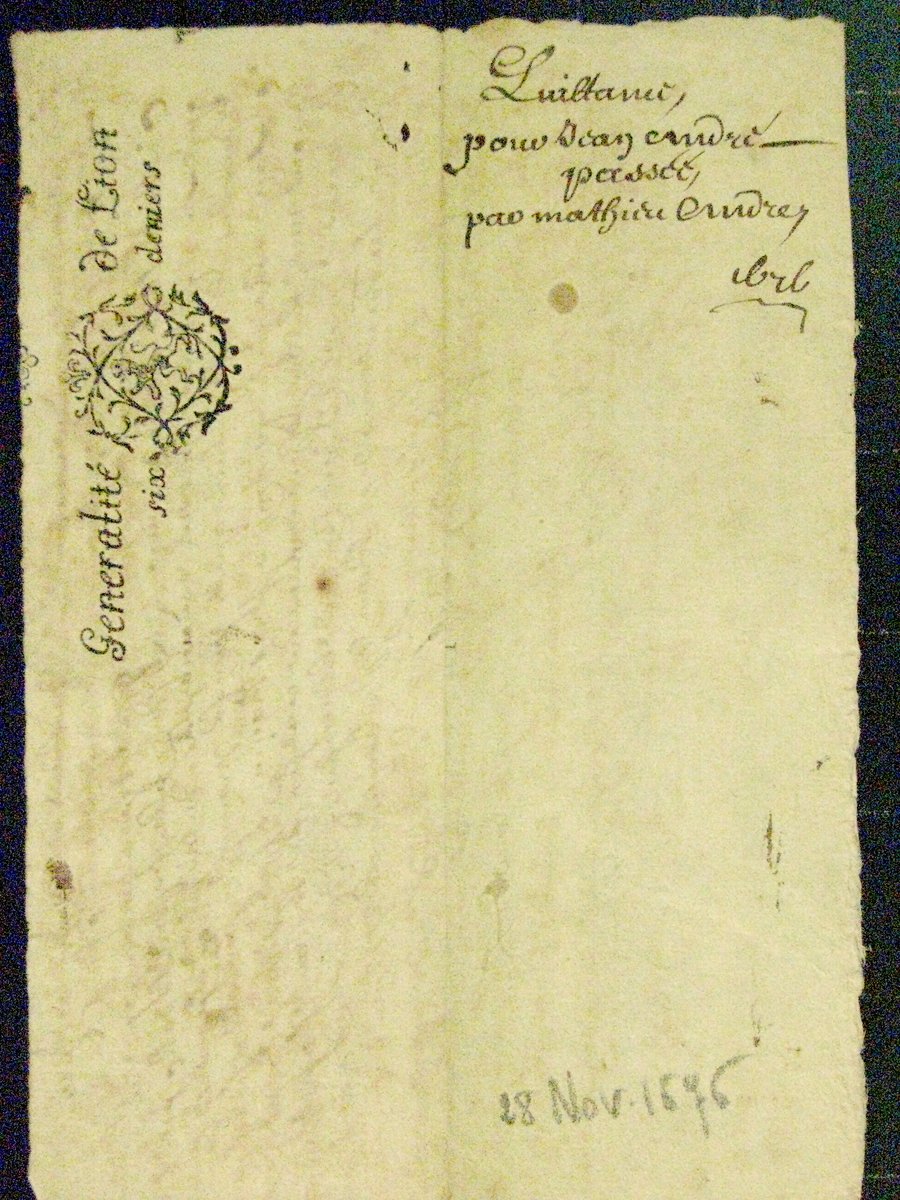 Quittance,
pour Jean Andre
passée,
par mathieu Andre,
1676
Generalité de Lion
six deniers
28 Nov. 1676